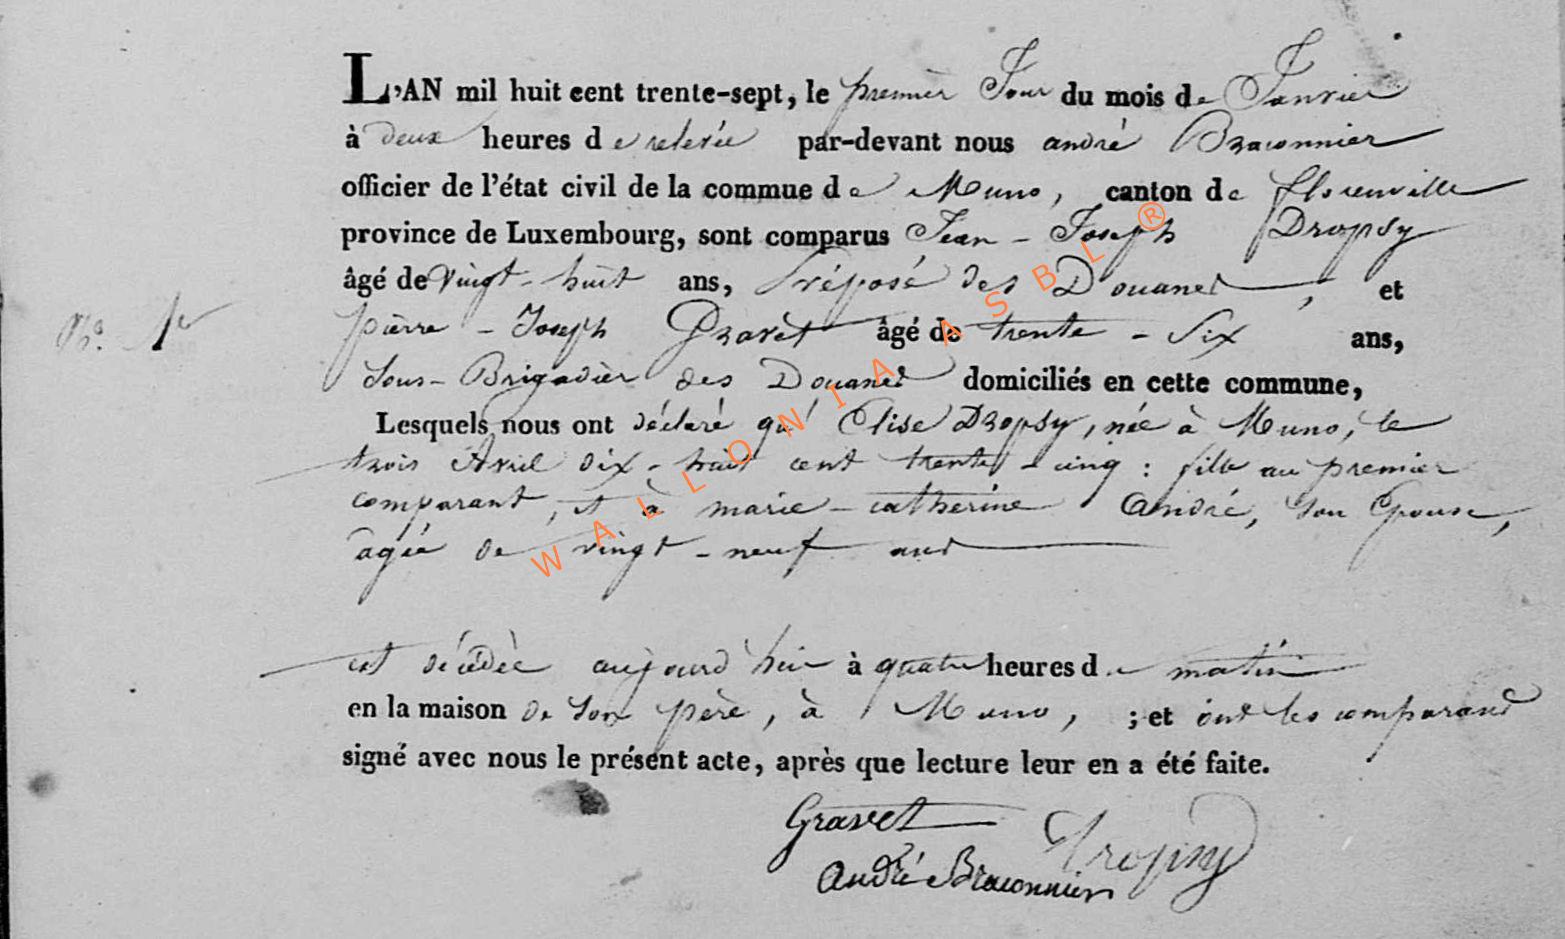 L'AN mil huit cent trente-sept, le premier Jour du mois de Janvier
à deux heures de relevée par-devant nous andré Braconnier
officier de l'état civil de la commue de Muno, canton de florenville
province de Luxembourg, sont comparus Jean - Joseph Dropsy
âgé de vingt - huit ans, Préposé des Douanes, et
N.o 1er
pièrre - Joseph Gravet âgé de trente - Six ans,
Sous - Brigadièr des Douanes domiciliés en cette commune,
Lesquels nous ont déclaré qu' Elise Dropsy, née à Muno, le
trois Avril dix - huit cent trente - cinq : fille au premier
comparant, et à marie - catherine André, son Epouse,
agée de vingt - neuf ans
est décédée aujourd'hui à quatre heures de matin
en la maison de son père, à Muno, ; et ont les comparans
signé avec nous le présent acte, après que lecture leur en a été faite.
Gravet
Dropsy
André Braconnier
WALLONIA ASBL ®